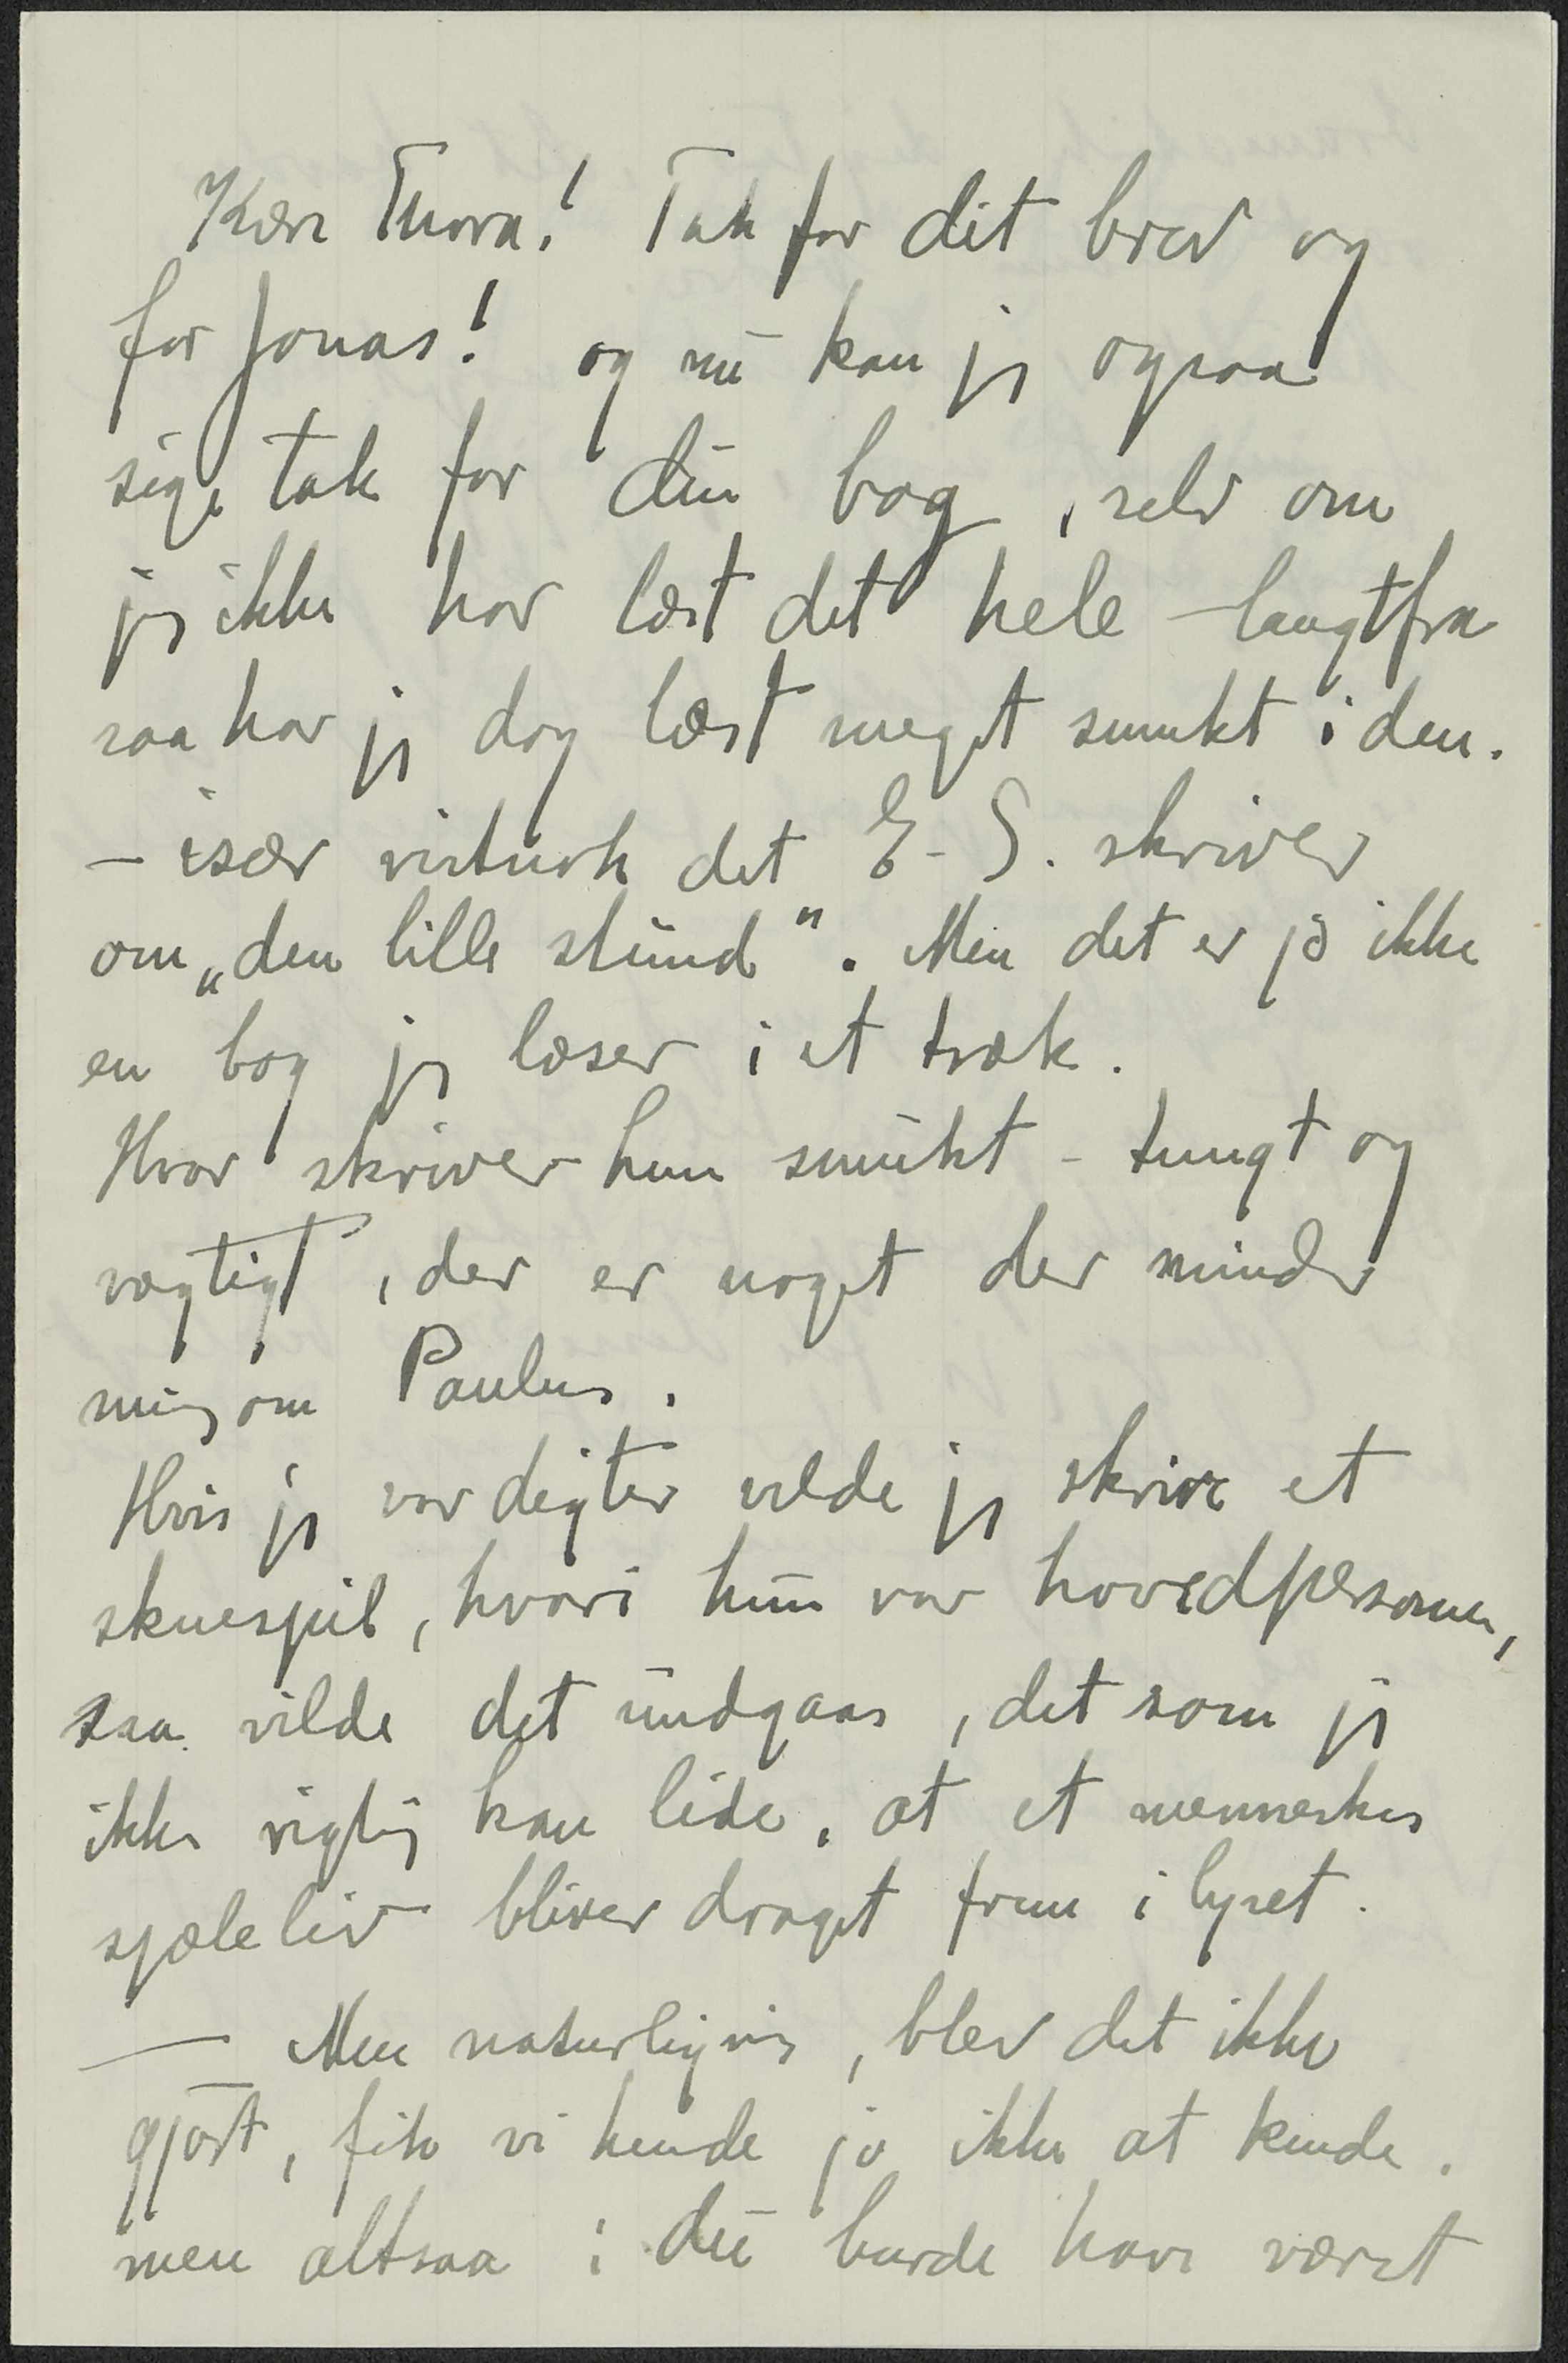 Kære Thora! Tak for dit brev og
for Jonas! og nu kan jeg ogsaa
sige tak for din bog, selv om
jeg ikke har læst det hele – langtfra
saa har jeg dog læst meget smukt i den.
– især vistnok det E. S. skriver
om „den lille stund". Men det er jo ikke
en bog jeg læser i et træk.
Hvor skriver hun smukt – tungt og
vægtigt, der er noget der minder
mig om Paulus.
Hvis jeg var digter vilde jeg skrive et
skuespil, hvori hun var hovedpersonen,
saa vilde det undgaas, det som jeg
ikke rigtig kan lide, at et menneskes
sjæleliv bliver draget frem i lyset.
— Men naturligvis, blev det ikke
gjort, fik vi hende jo ikke at kende.
men altsaa: du burde have været